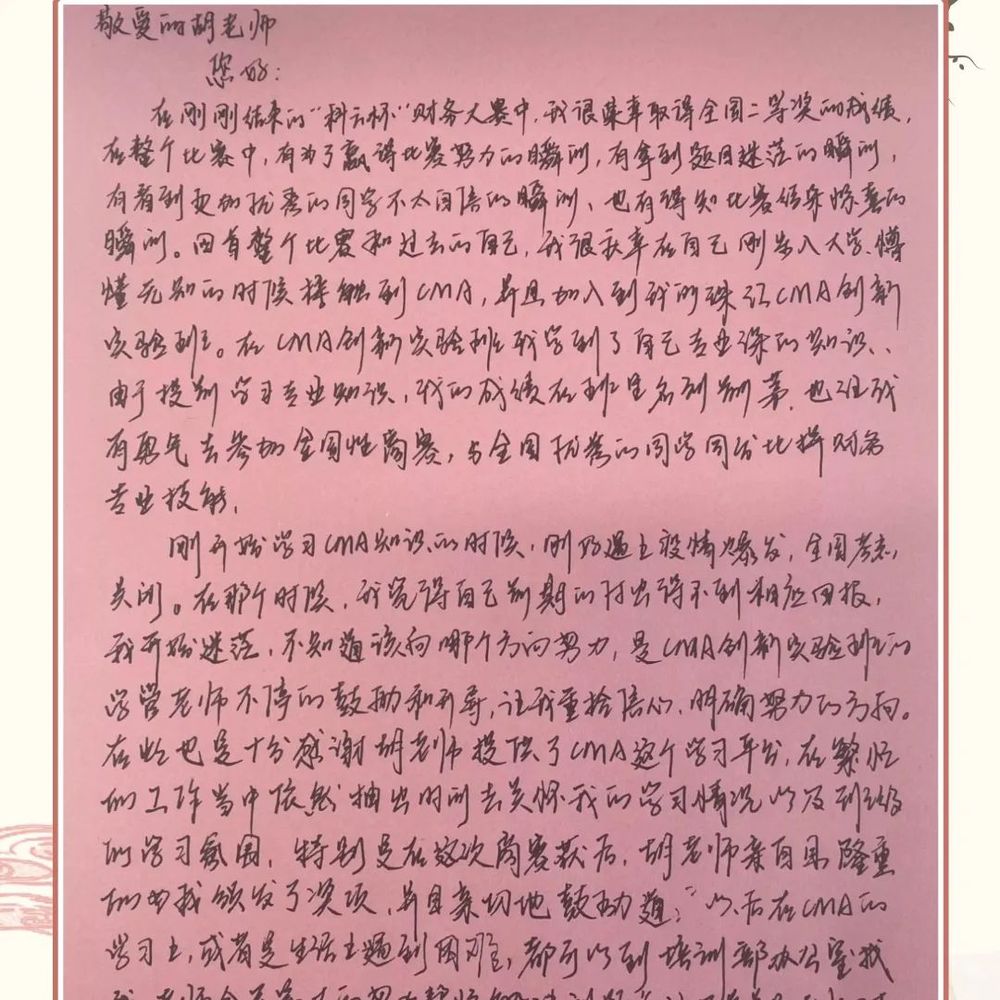 敬爱的胡老师
您好:
在刚刚结束的“科云杯”财务大赛中,我很荣幸取得全国二等奖的成绩,
在整个比赛中,有为了赢得比赛努力的瞬间,有拿到题目迷茫的瞬间,
有看到更加优秀的同学不太自信的瞬间、也有得知比赛结果惊喜的
瞬间。回首整个比赛和过去的自己,我很庆幸在自己刚步入大学、懵
懂无知的时候接触到CMA,并且加入到我们珠江CMA创新
实验班。在CMA创新实验班我学到了自己专业课的知识、
由于提前学习专业知识,我的成绩在班里名列前茅,也让我
有勇气去参加全国性商赛,与全国优秀的同学同台比拼财务
专业技能,
刚开始学习CMA知识的时候,刚好遇上疫情爆发,全国考点
关闭。在那个时候,我觉得自己前期的付出得不到相应回报,
我开始迷茫,不知道该向哪个方向努力,是CMA创新实验班的
学管老师不停的鼓励和开导,让我重拾信心,明确努力的方向。
在此也是十分感谢胡老师提供了CMA这个学习平台,在繁忙
的工作当中依然抽出时间去关怀我的学习情况以及班级
的学习氛围,特别是在这次商赛获后,胡老师亲自且隆重
的为我颁发了奖项,并且亲切地鼓励道:“以后在CMA的
学习上,或者是生活上遇到困难,都可以到培训部办公室找